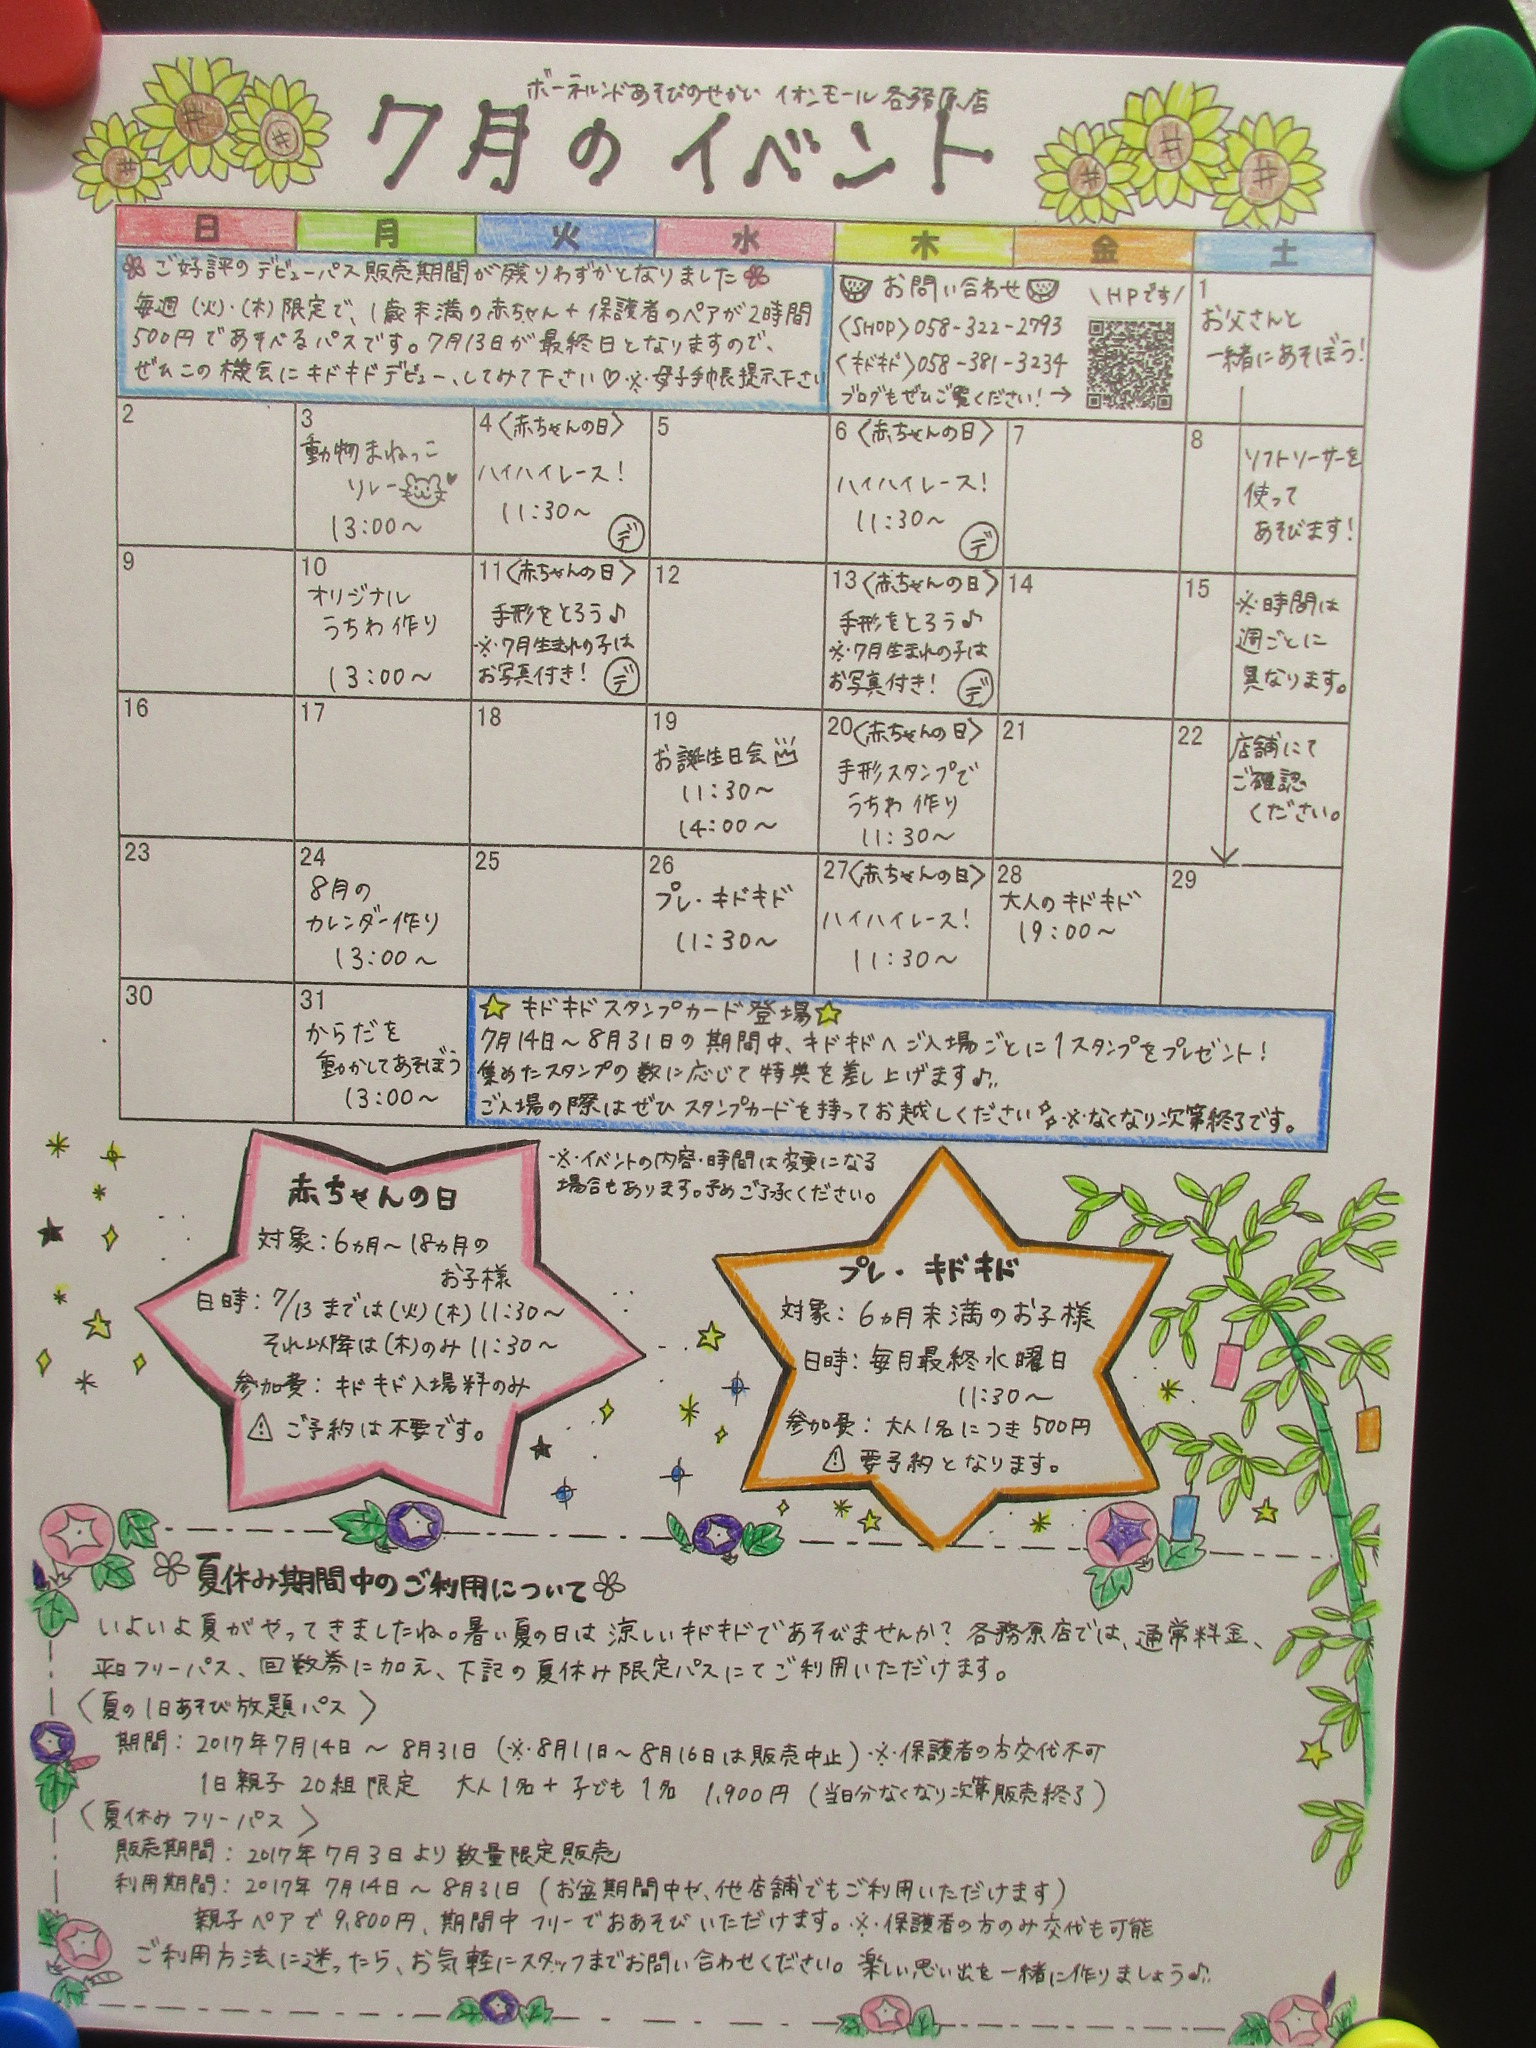 ボーネルンドあそびのせかい イオンモール各務原店
7月のイベント
日 月 火 水 木 金 土
ご好評のデビューパス販売期間が残りわずかとなりました
毎週(火)・(木)限定で、1歳未満の赤ちゃん+保護者のペアが2時間
500円であそべるパスです。7月13日が最終日となりますので、
ぜひこの機会にキドキドデビュー、してみて下さい♡※母子手帳提示下さい
お問い合わせ
\HPです/
〈SHOP〉058-322-2793
〈キドキド〉058-381-3234
ブログもぜひご覧ください!→
1
お父さんと
一緒にあそぼう!
2
3
動物まねっこ
リレー
13:00~
4〈赤ちゃんの日〉
ハイハイレース!
11:30~
デ
5
6〈赤ちゃんの日〉
ハイハイレース!
11:30~
デ
7
8
ソフトソーサーを
使って
あそびます!
9
10
オリジナル
うちわ作り
13:00~
11〈赤ちゃんの日〉
手形をとろう♪
※7月生まれの子は
お写真付き!
デ
12
13〈赤ちゃんの日〉
手形をとろう♪
※7月生まれの子は
お写真付き!
デ
14
15
※時間は
週ごとに
異なります。
16
17
18
19
お誕生日会
11:30~
14:00~
20〈赤ちゃんの日〉
手形スタンプで
うちわ作り
11:30~
21
22
店舗にて
ご確認
ください。
23
24
8月の
カレンダー作り
13:00~
25
26
プレ・キドキド
11:30~
27〈赤ちゃんの日〉
ハイハイレース!
11:30~
28
大人のキドキド
19:00~
29
30
31
からだを
動かしてあそぼう
13:00~
☆キドキドスタンプカード登場☆
7月14日~8月31日の期間中、キドキドへご入場ごとに1スタンプをプレゼント!
集めたスタンプの数に応じて特典を差し上げます♪
ご入場の際はぜひスタンプカードを持ってお越しください ※なくなり次第終了です。
※イベントの内容・時間は変更になる
場合もあります。予めご了承ください。
赤ちゃんの日
対象:6ヵ月~18ヵ月の
お子様
日時:7/13までは(火)(木)11:30~
それ以降は(木)のみ11:30~
参加費:キドキド入場料のみ
⚠ご予約は不要です。
プレ・キドキド
対象:6ヵ月未満のお子様
日時:毎月最終水曜日
11:30~
参加費:大人1名につき500円
⚠要予約となります。
夏休み期間中のご利用について
いよいよ夏がやってきましたね。暑い夏の日は涼しいキドキドであそびませんか?各務原店では、通常料金、
平日フリーパス、回数券に加え、下記の夏休み限定パスにてご利用いただけます。
〈夏の1日あそび放題パス〉
期間:2017年7月14日~8月31日(※8月11日~8月16日は販売中止)※保護者の方交代不可
1日親子20組限定 大人1名+子ども1名 1,900円(当日分なくなり次第販売終了)
〈夏休みフリーパス〉
販売期間:2017年7月3日より数量限定販売
利用期間:2017年7月14日~8月31日(お盆期間中や、他店舗でもご利用いただけます)
親子ペアで9,800円、期間中フリーでおあそびいただけます。※保護者の方のみ交代も可能
ご利用方法に迷ったら、お気軽にスタッフまでお問い合わせください。楽しい思い出を一緒に作りましょう♪